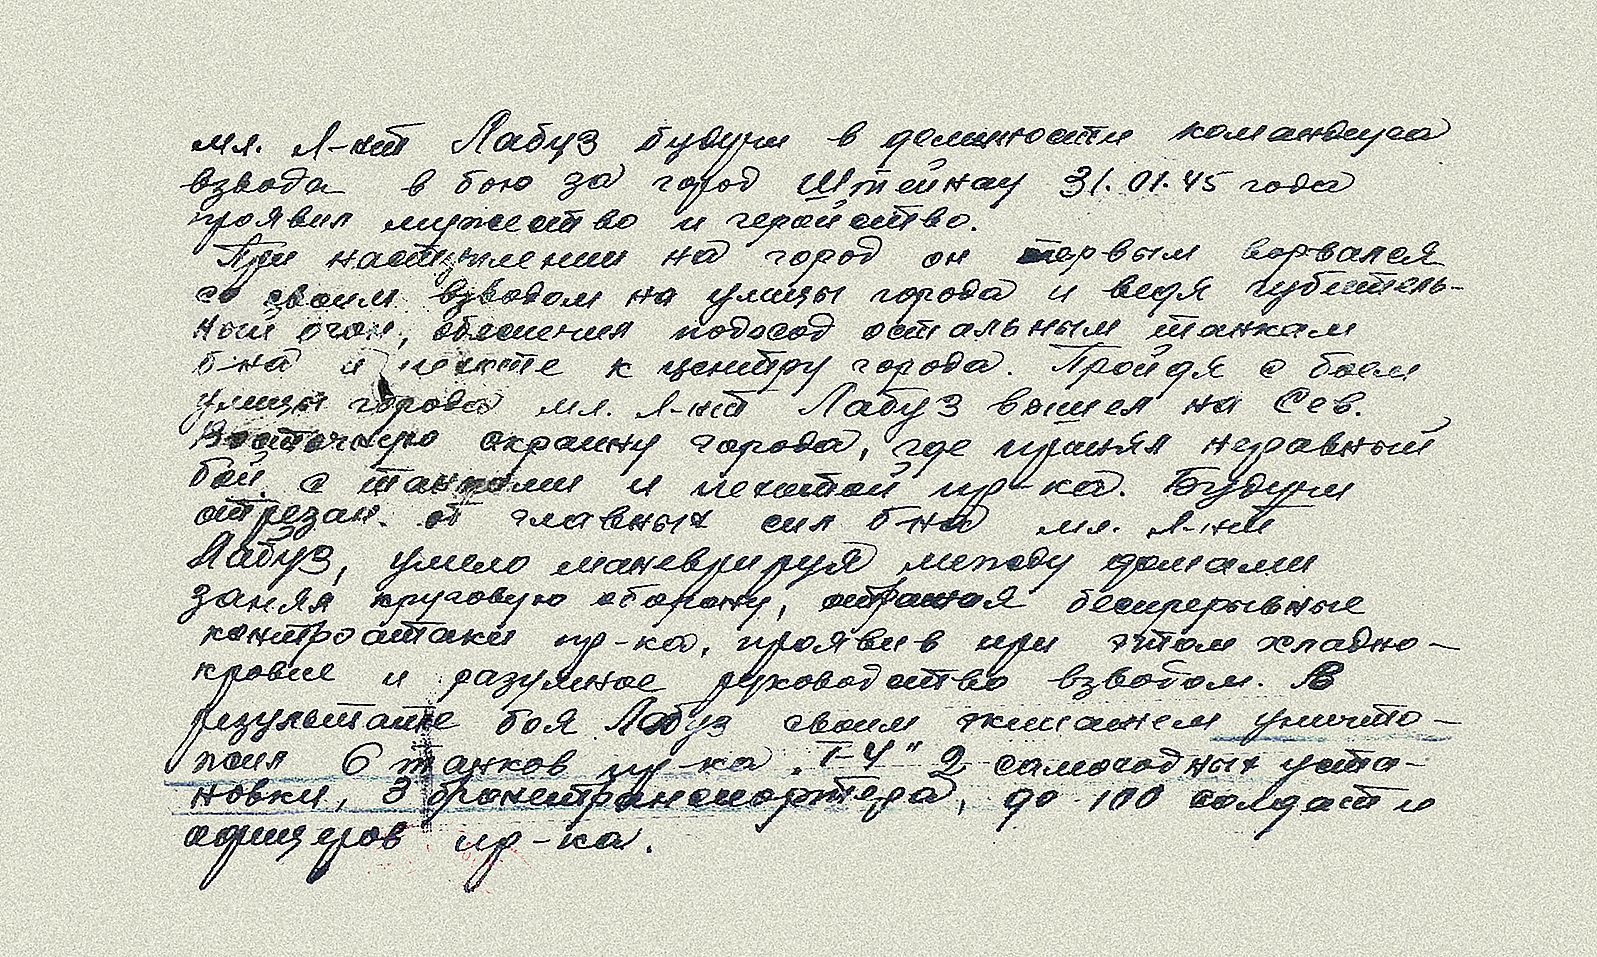 мл. л-нт Лабуз будучи в должности командира
взвода в бою за город Штейнау 31.01.45 года
проявил мужество и геройство.
При наступлении на город он первым ворвался
со своим взводом на улицы города и ведя губитель-
ный огон, обеспечил подход остальным танкам
б-на и пехоте к центру города. Пройдя с боем
улицы города мл. л-нт Лабуз вышел на Сев.
Восточную окраину города, где принял неравный
бой с танками и пехотой пр-ка. Будучи
отрезан. от главных сил б-на мл. л-нт
Лабуз, умело маневрируя между домами
занял круговую оборону, отражая бесперерывные
контратаки пр-ка, проявив при этом хладно-
кровие и разумное руководство взводом. В
результате боя Лабуз своим экипажем уничто-
жил 6 танков пр-ка "Т-4" 2 самоходных уста-
новки, 3 бронетранспортера, до 100 солдат и
офицеров пр-ка.